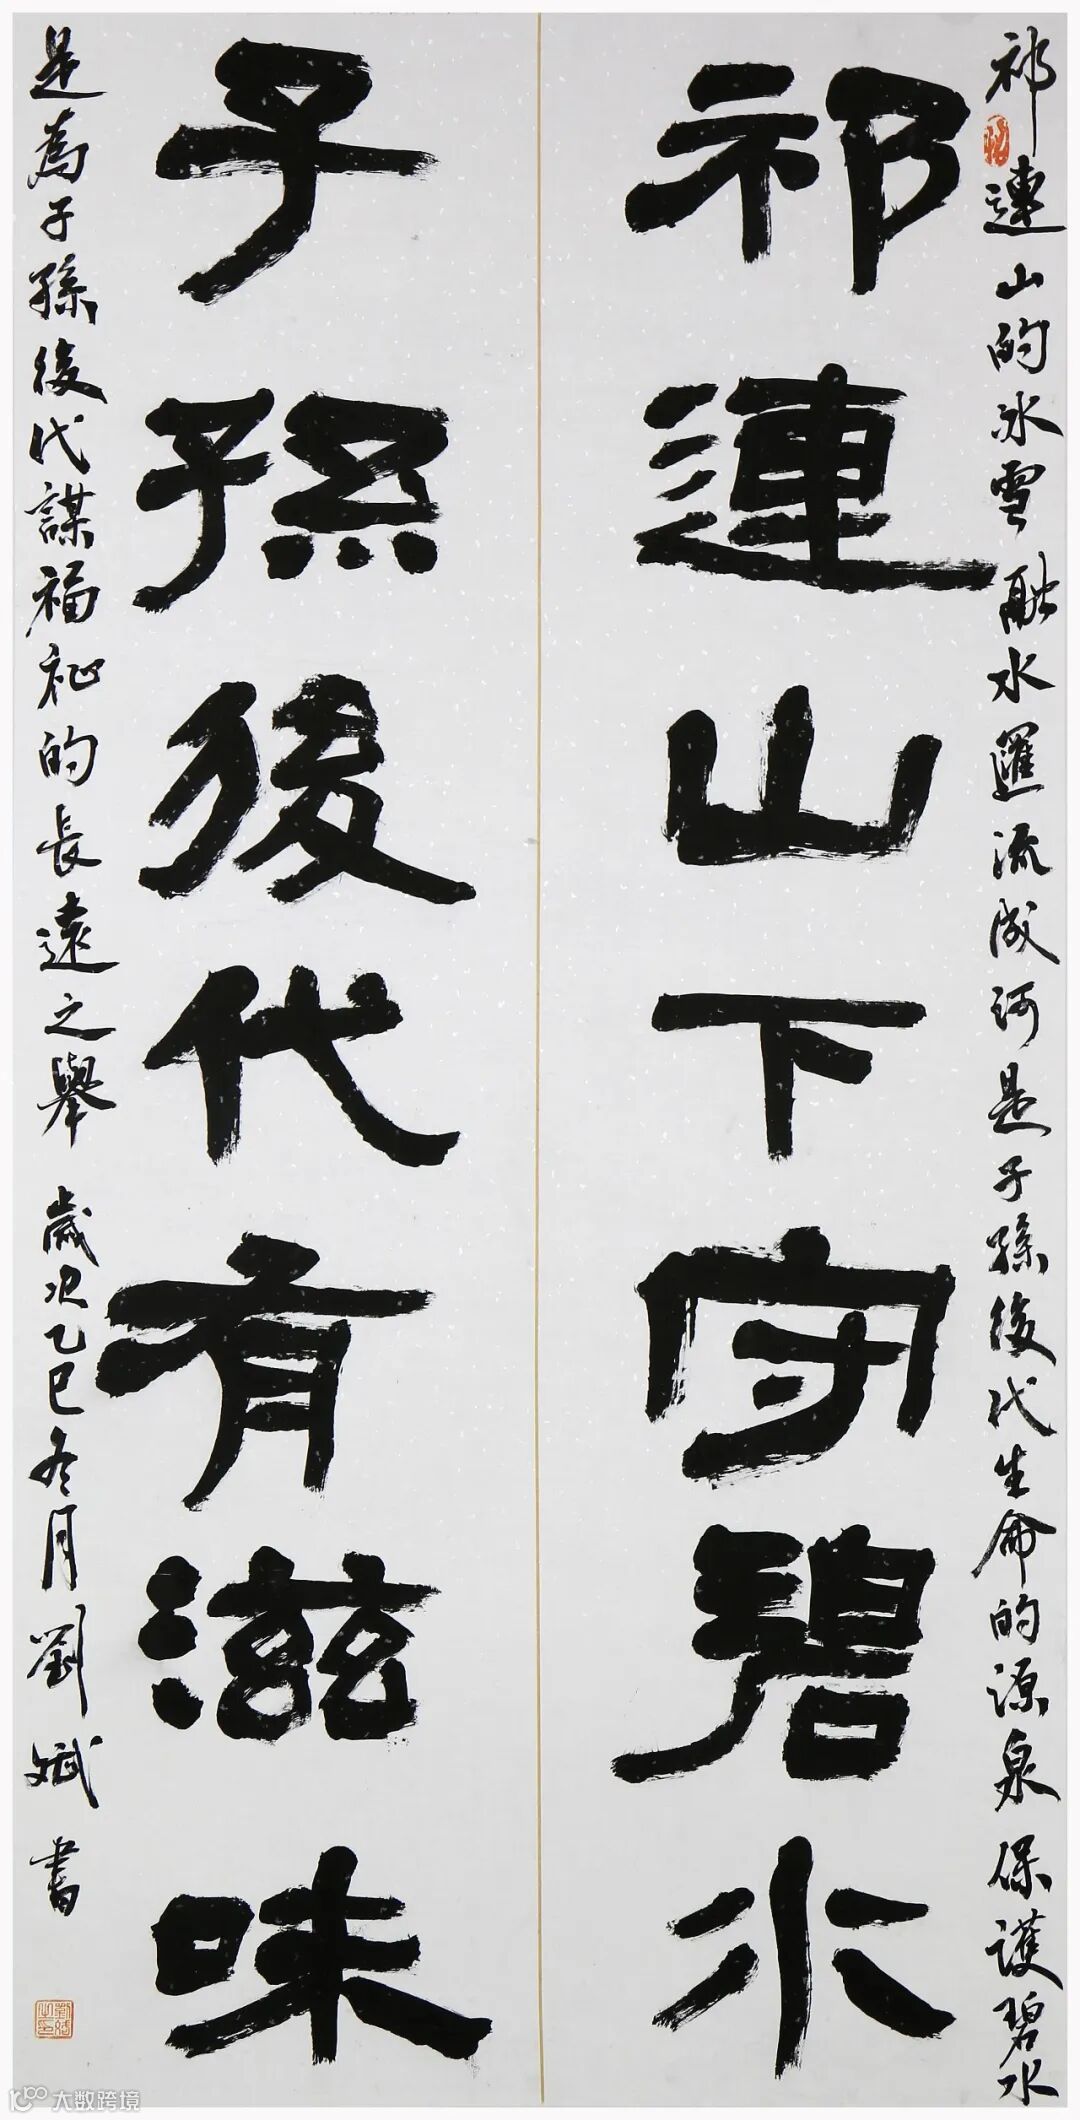 祁連山的冰雪融水匯流成河是子孫後代生命的源泉保護碧水
祁連山下守碧水
子孫後代有滋味
是為子孫後代謀福祉的長遠之舉 歲次乙巳冬月劉斌書
大数跨境